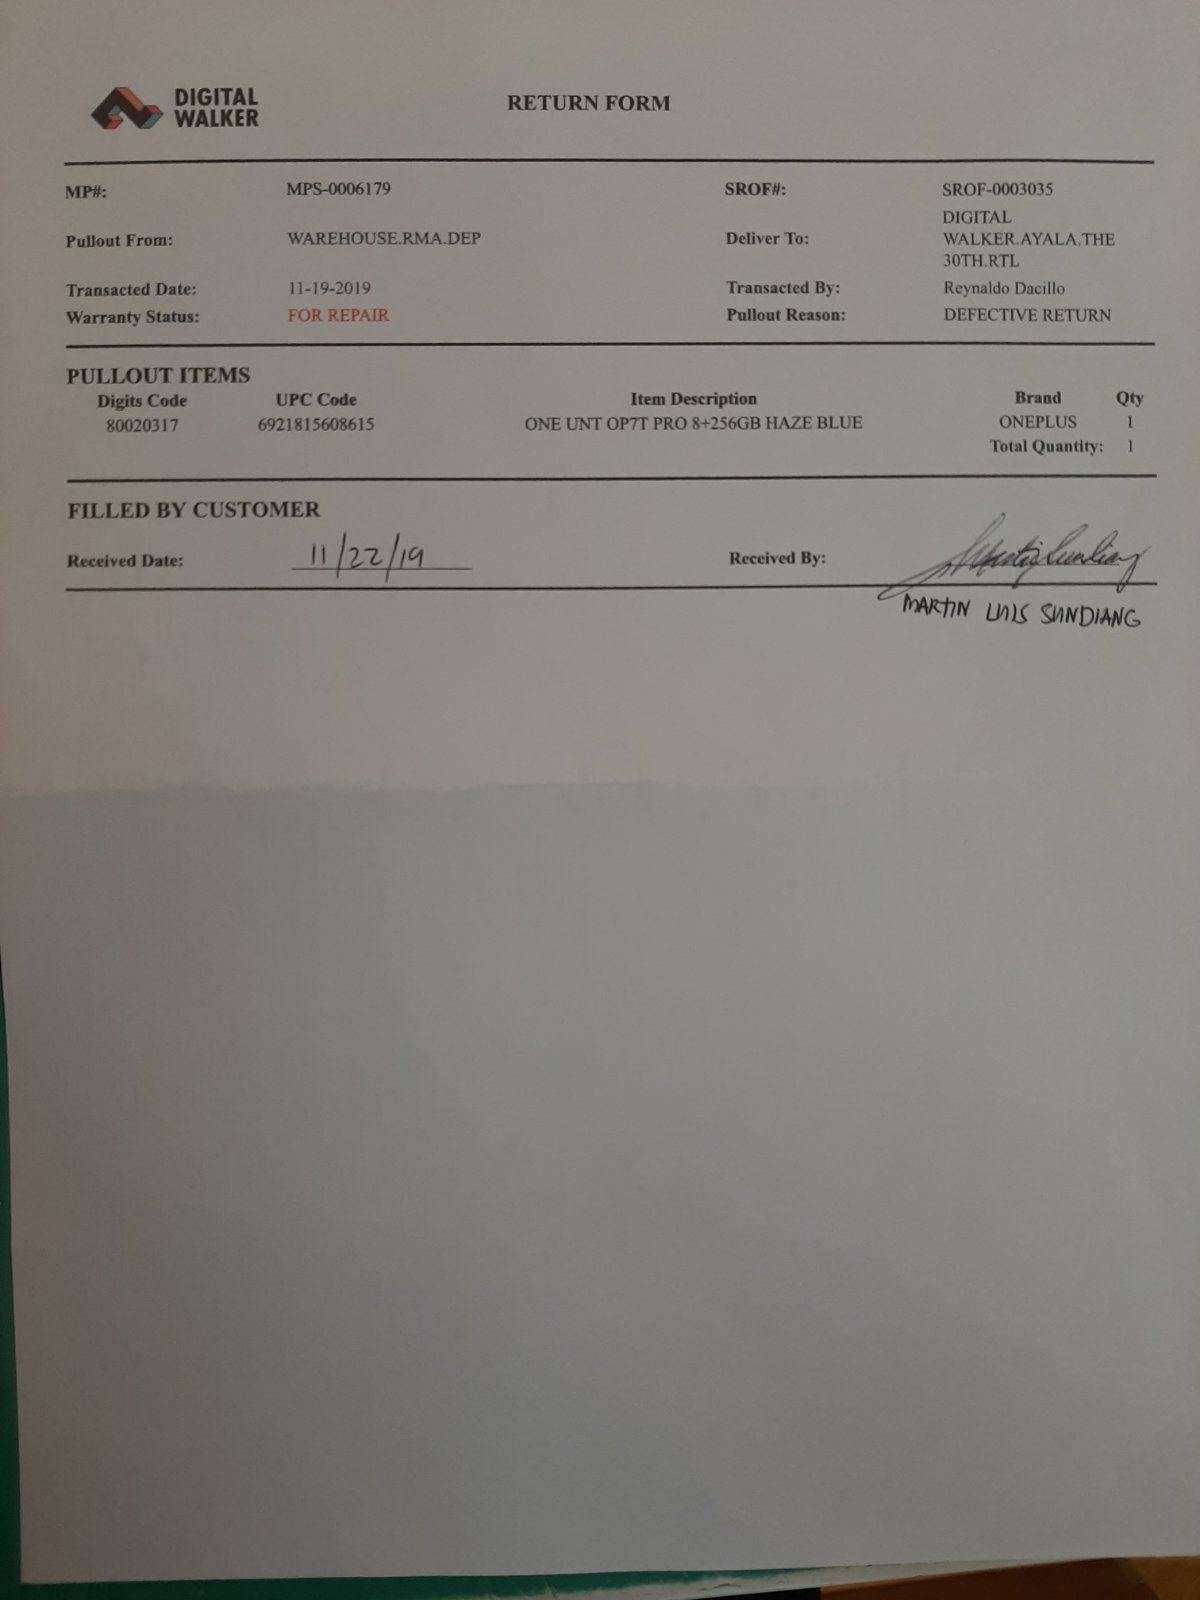 DIGITAL
WALKER
RETURN FORM
MP#: MPS-0006179 SROF#: SROF-0003035
Pullout From: WAREHOUSE.RMA.DEP Deliver To: DIGITAL
WALKER.AYALA.THE
30TH.RTL
Transacted Date: 11-19-2019 Transacted By: Reynaldo Dacillo
Warranty Status: FOR REPAIR Pullout Reason: DEFECTIVE RETURN
PULLOUT ITEMS
Digits Code UPC Code Item Description Brand Qty
80020317 6921815608615 ONE UNT OP7T PRO 8+256GB HAZE BLUE ONEPLUS 1
Total Quantity: 1
FILLED BY CUSTOMER
Received Date: 11/22/19 Received By: Martin Sundiang
MARTIN LUIS SUNDIANG